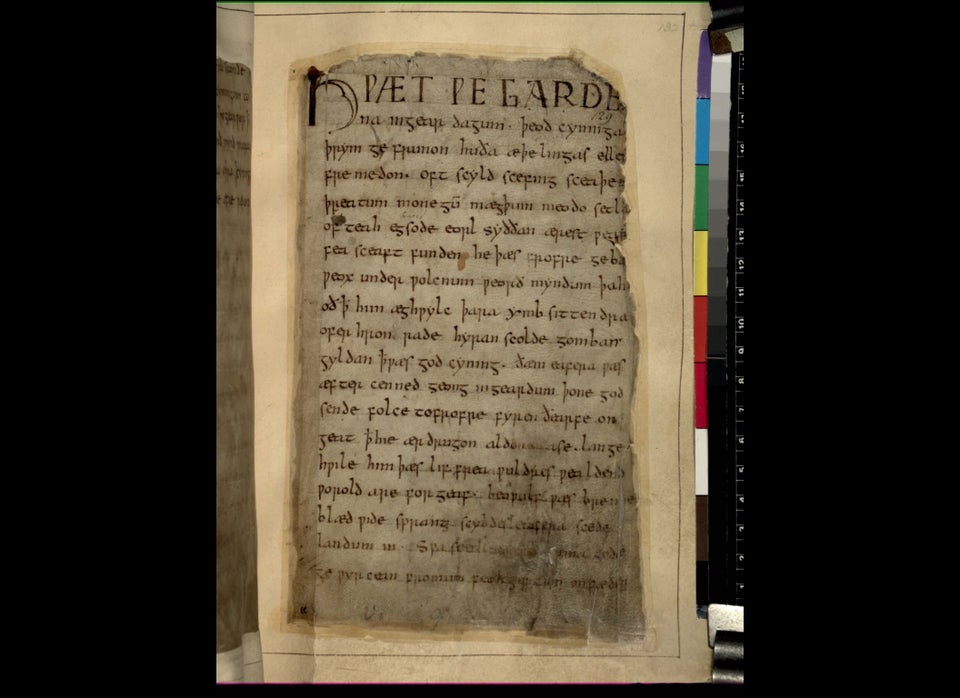 HǷÆT ǷE GARDE
129
na ingear dagum. þeod cyninga
þrym ge frunon huða æþelingas elle
fremedon. oft scyld scefing sceaþe
þreatum monegū mægþum meodo setla
of teah egsode eorl syððan ærest
fea sceaft funden he þæs frofre geba
ƿeox under ƿolcnum ƿeorð myndum þah
oð ꝥ him æghƿylc þara ymb sittendra
ofer hron rade hyran scolde gomban
gyldan ꝥ ƿæs god cyning. ðæm eafera ƿæs
æfter cenned geong ingeardum þone god
sende folce tofrofre fyren ðearfe on
geat ꝥ hie ær drugon aldor ase. lange
hƿile him þæs lif frea ƿuldres ƿealdend
ƿorold are for geaf. beoƿulf ƿæs breme
blæd ƿide sprang scyldes eafera scede
landum in. Sƿa guma gode
ge ƿyrcean fromum feoh giftum on fæder